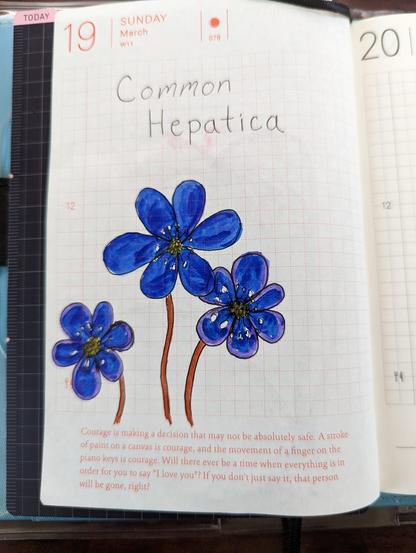 TODAY
19
SUNDAY
March
W11
078
20
Common
Hepatica
12
12
Courage is making a decision that may not be absolutely safe. A stroke
of paint on a canvas is courage, and the movement of a finger on the
piano keys is courage. Will there ever be a time when everything is in
order for you to say "I love you"? If you don't just say it, that person
will be gone, right?